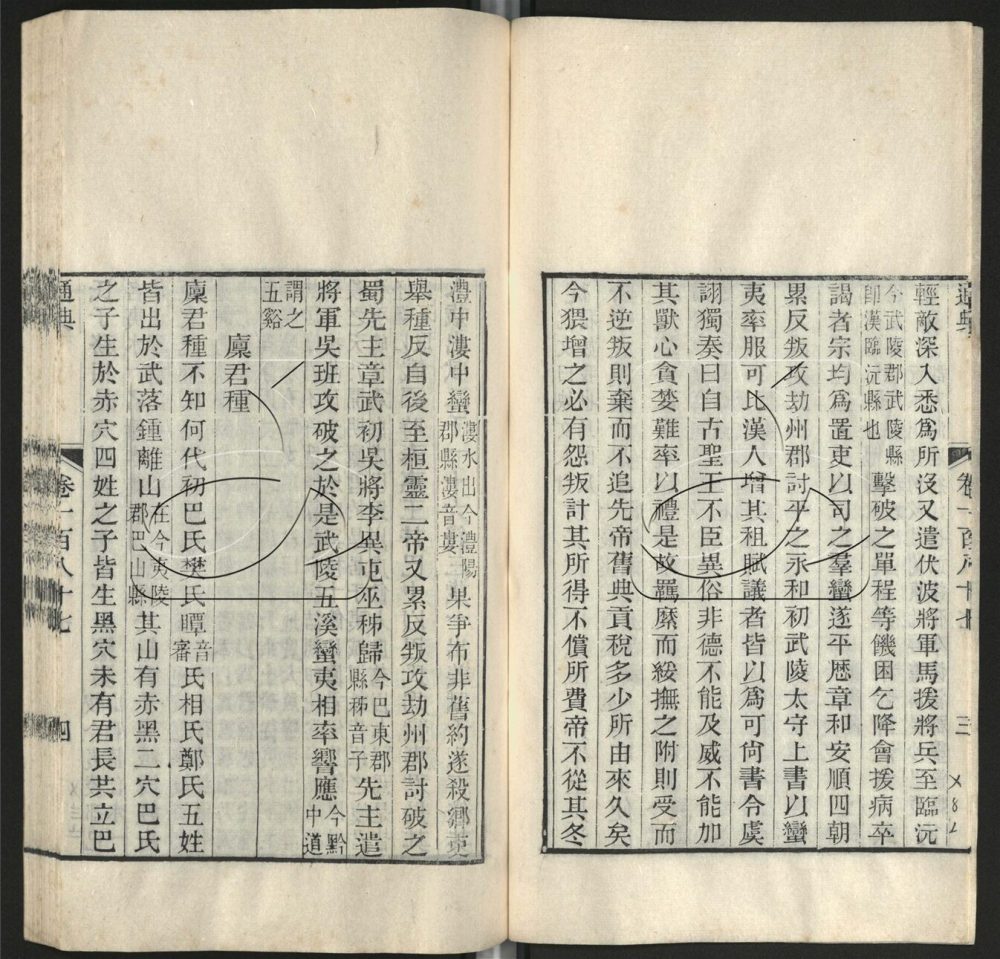 通典
卷一百八十七
三
輕敵深入悉爲所沒又遣伏波將軍馬援將兵至臨沅
今武陵郡武陵縣
卽漢臨沅縣也
擊破之單程等饑困乞降會援病卒
謁者宗均爲置吏以司之羣蠻遂平歷章和安順四朝
累反叛攻劫州郡討平之永和初武陵太守上書以蠻
夷率服可比漢人增其租賦議者皆以爲可尙書令虞
詡獨奏曰自古聖王不臣異俗非德不能及威不能加
其獸心貪婪難率以禮是故羈縻而綏撫之附則受而
不逆叛則棄而不追先帝舊典貢稅多少所由來久矣
今猥增之必有怨叛計其所得不償所費帝不從其冬
澧中漊中蠻
漊水出今澧陽
郡縣漊音婁
二果爭布非舊約遂殺鄕吏
舉種反自後至桓靈二帝又累反叛攻劫州郡討破之
蜀先主章武初吳將李異屯巫秭歸
今巴東郡
縣秭音子
先主遣
將軍吳班攻破之於是武陵五溪蠻夷相率響應
今黔
中道
謂之
五谿
廩君種
廩君種不知何代初巴氏樊氏瞫
音
審
氏相氏鄭氏五姓
皆出於武落鍾離山
在今夷陵
郡巴山縣
其山有赤黑二穴巴氏
之子生於赤穴四姓之子皆生黑穴未有君長共立巴
通典
卷一百八十七
四